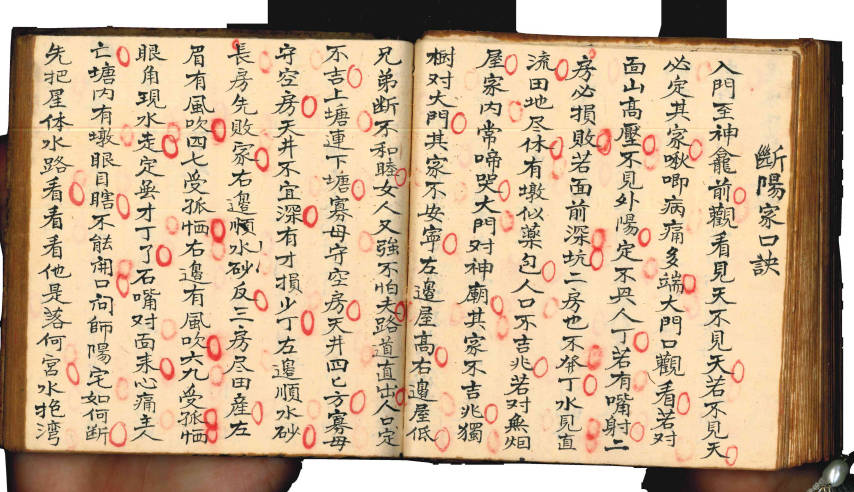 斷陽家口訣
入門至神龕前觀看見天不見天若不見天
必定其家啾唧病痛多端大門口觀看若对
面山高壓不見外陽定不興人丁若有嘴射二
房必損敗若面前深坑二房也不發丁水見直
流田地尽休有墩似藥包人口不吉兆若对無烟
屋家内常啼哭大門对神廟其家不吉兆獨
樹对大門其家不安寧左邉屋高右邉屋低
兄弟断不和睦女人又強不怕夫路道直出人口定
不吉上塘連下塘寡母守空房天井四七方寡母
守空房天井不宜深有才損少丁左邉順水砂
長房先敗家右邉順水砂反三房尽田產左
眉有風吹四七受孤恓右邉有風吹六九受孤恓
眼角現水走定無才丁了石嘴对面来心痛主人
亡塘内有墩眼目瞎不能開口问師陽宅如何断
先把星体水路看看看他是落何宮水抱湾